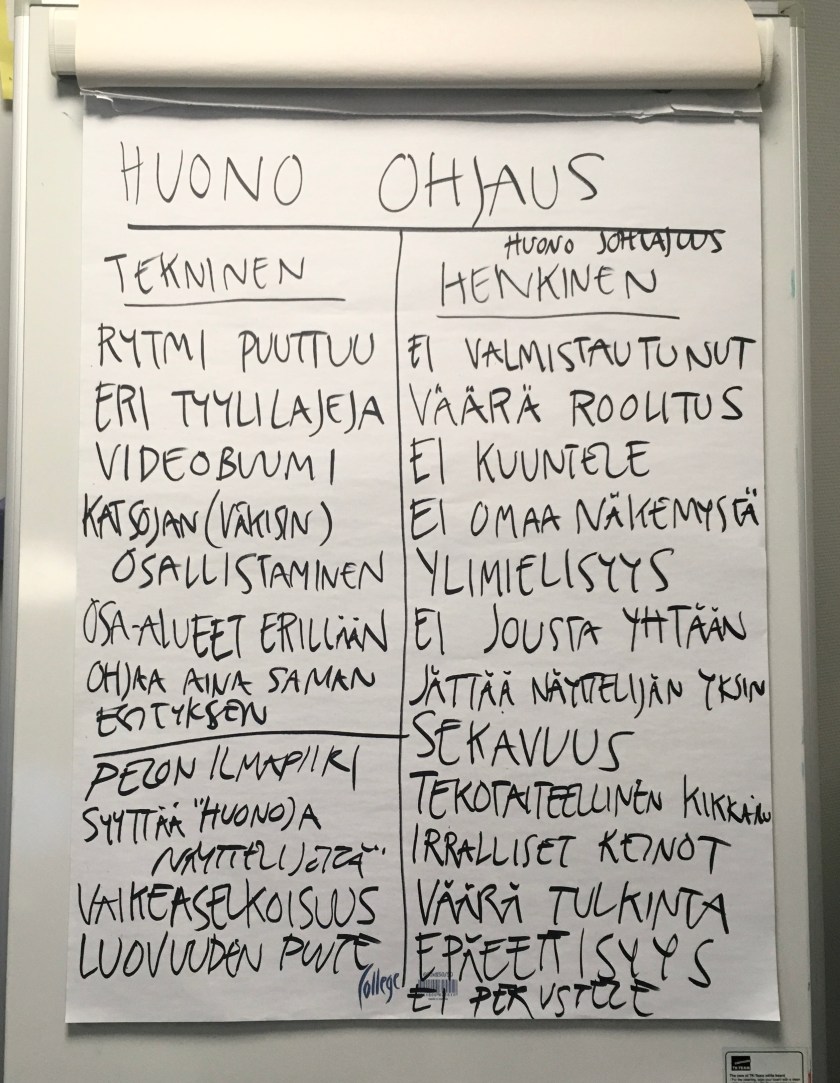 HUONO OHJAUS
TEKNINEN
RYTMI PUUTTUU
ERI TYYLILAJEJA
VIDEOBUUMI
KATSOJAN (VÄKISIN)
OSALLISTAMINEN
OSA-ALUEET ERILLÄÄN
OHJAA AINA SAMAN
ESITYKSEN
PELON ILMAPIIRI
SYYTTÄÄ "HUONOJA
NÄYTTELIJÖITÄ"
VAIKEASELKOISUUS
LUOVUUDEN PUUTE
HUONO JOHTAJUUS
HENKINEN
EI VALMISTAUTUNUT
VÄÄRÄ ROOLITUS
EI KUUNTELE
EI OMAA NÄKEMYSTÄ
YLIMIELISYYS
EI JOUSTA YHTÄÄN
JÄTTÄÄ NÄYTTELIJÄN YKSIN
SEKAVUUS
TEKOTAITEELLINEN KIKKAILU
IRRALLISET KEINOT
VÄÄRÄ TULKINTA
EPÄEETTISYYS
EI PERUSTELE
College